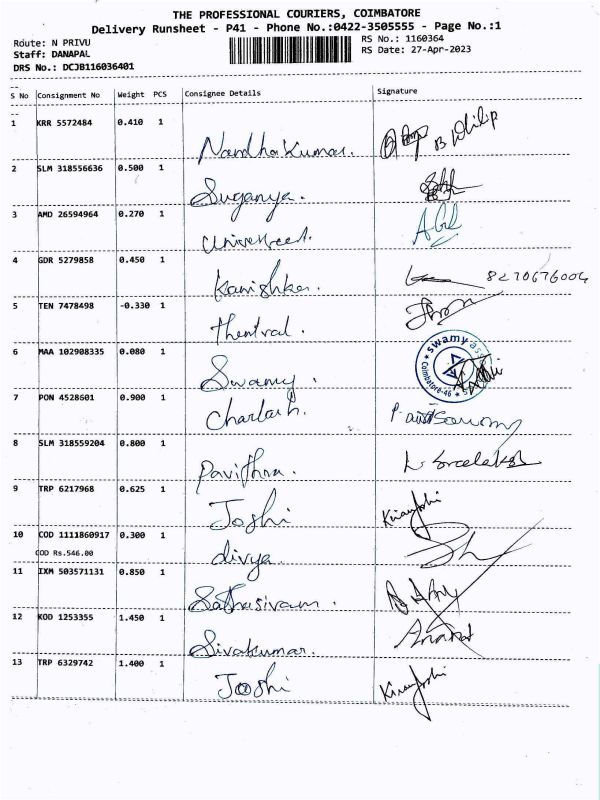 THE PROFESSIONAL COURIERS, COIMBATORE
Delivery Runsheet - P41 - Phone No.:0422-3505555 - Page No.:1
Route: N PRIVU
RS No.: 1160364
Staff: DANAPAL
RS Date: 27-Apr-2023
DRS No.: DCJB116036401
S No Consignment No Weight PCS Consignee Details Signature
1 KRR 5572484 0.410 1 Nandha Kumar. B Philip
2 SLM 318556636 0.500 1 Suganya.
3 AMD 26594964 0.270 1
4 GDR 5279858 0.450 1 Kanishka. 8270676004
5 TEN 7478498 -0.330 1 Thentral.
6 MAA 102908335 0.080 1 Swamy. swamy ass Coimbatore-46
7 PON 4528601 0.900 1
8 SLM 318559204 0.800 1 Pavithra.
9 TRP 6217968 0.625 1 Joshi Kiran Joshi
10 COD 1111860917 0.300 1 divya.
COD Rs.546.00
11 IXM 503571131 0.850 1 Sathasivam.
12 KOD 1253355 1.450 1 Sivakumar. Anand
13 TRP 6329742 1.400 1 Joshi Kiran Joshi